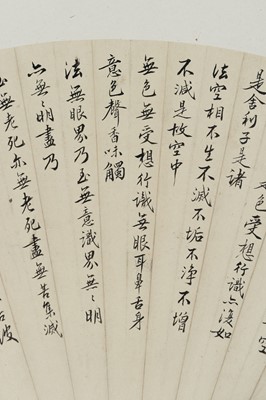 是色受想行識亦復如
是舍利子是諸
法空相不生不滅不垢不淨不增
不減是故空中
無色無受想行識無眼耳鼻舌身
意色聲香味觸
法無眼界乃至無意識界無〻明
亦無〻明盡乃
至無老死亦無老死盡無苦集滅